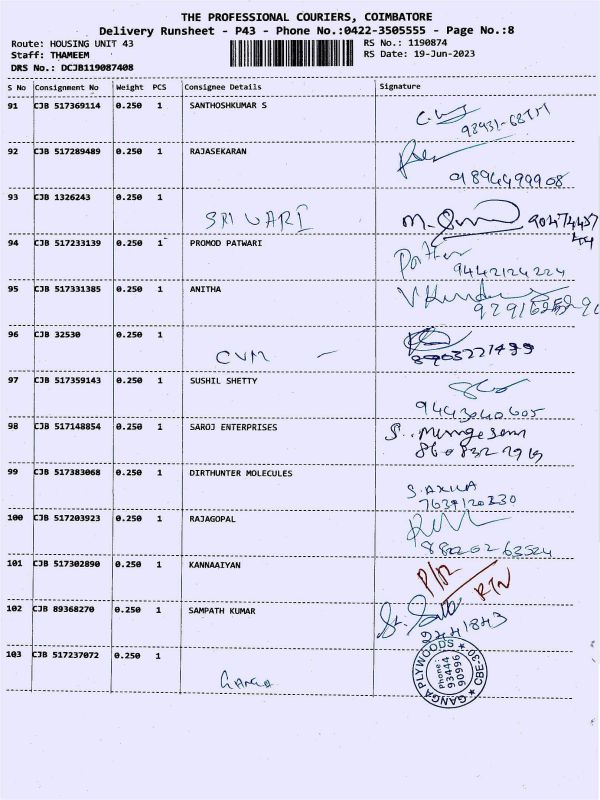 THE PROFESSIONAL COURIERS, COIMBATORE
Delivery Runsheet - P43 - Phone No.:0422-3505555 - Page No.:8
Route: HOUSING UNIT 43 RS No.: 1190874
Staff: THAMEEM RS Date: 19-Jun-2023
DRS No.: DCJB119087408
S No Consignment No Weight PCS Consignee Details Signature
91 CJB 517369114 0.250 1 SANTHOSHKUMAR S
92 CJB 517289489 0.250 1 RAJASEKARAN
01894499908
93 CJB 1326243 0.250 1
SRI VARI
94 CJB 517233139 0.250 1 PROMOD PATWARI
9442124224
95 CJB 517331385 0.250 1 ANITHA
96 CJB 32530 0.250 1
CVM - 8903221499
97 CJB 517359143 0.250 1 SUSHIL SHETTY
9443040605
98 CJB 517148854 0.250 1 SAROJ ENTERPRISES
99 CJB 517383068 0.250 1 DIRTHUNTER MOLECULES
7639120330
100 CJB 517203923 0.250 1 RAJAGOPAL
101 CJB 517302890 0.250 1 KANNAAIYAN
RTN
102 CJB 89368270 0.250 1 SAMPATH KUMAR
2441843
103 CJB 517237072 0.250 1
GANGA
GANGA PLYWOODS ★ CBE-30 ★
Phone:
93444
90996